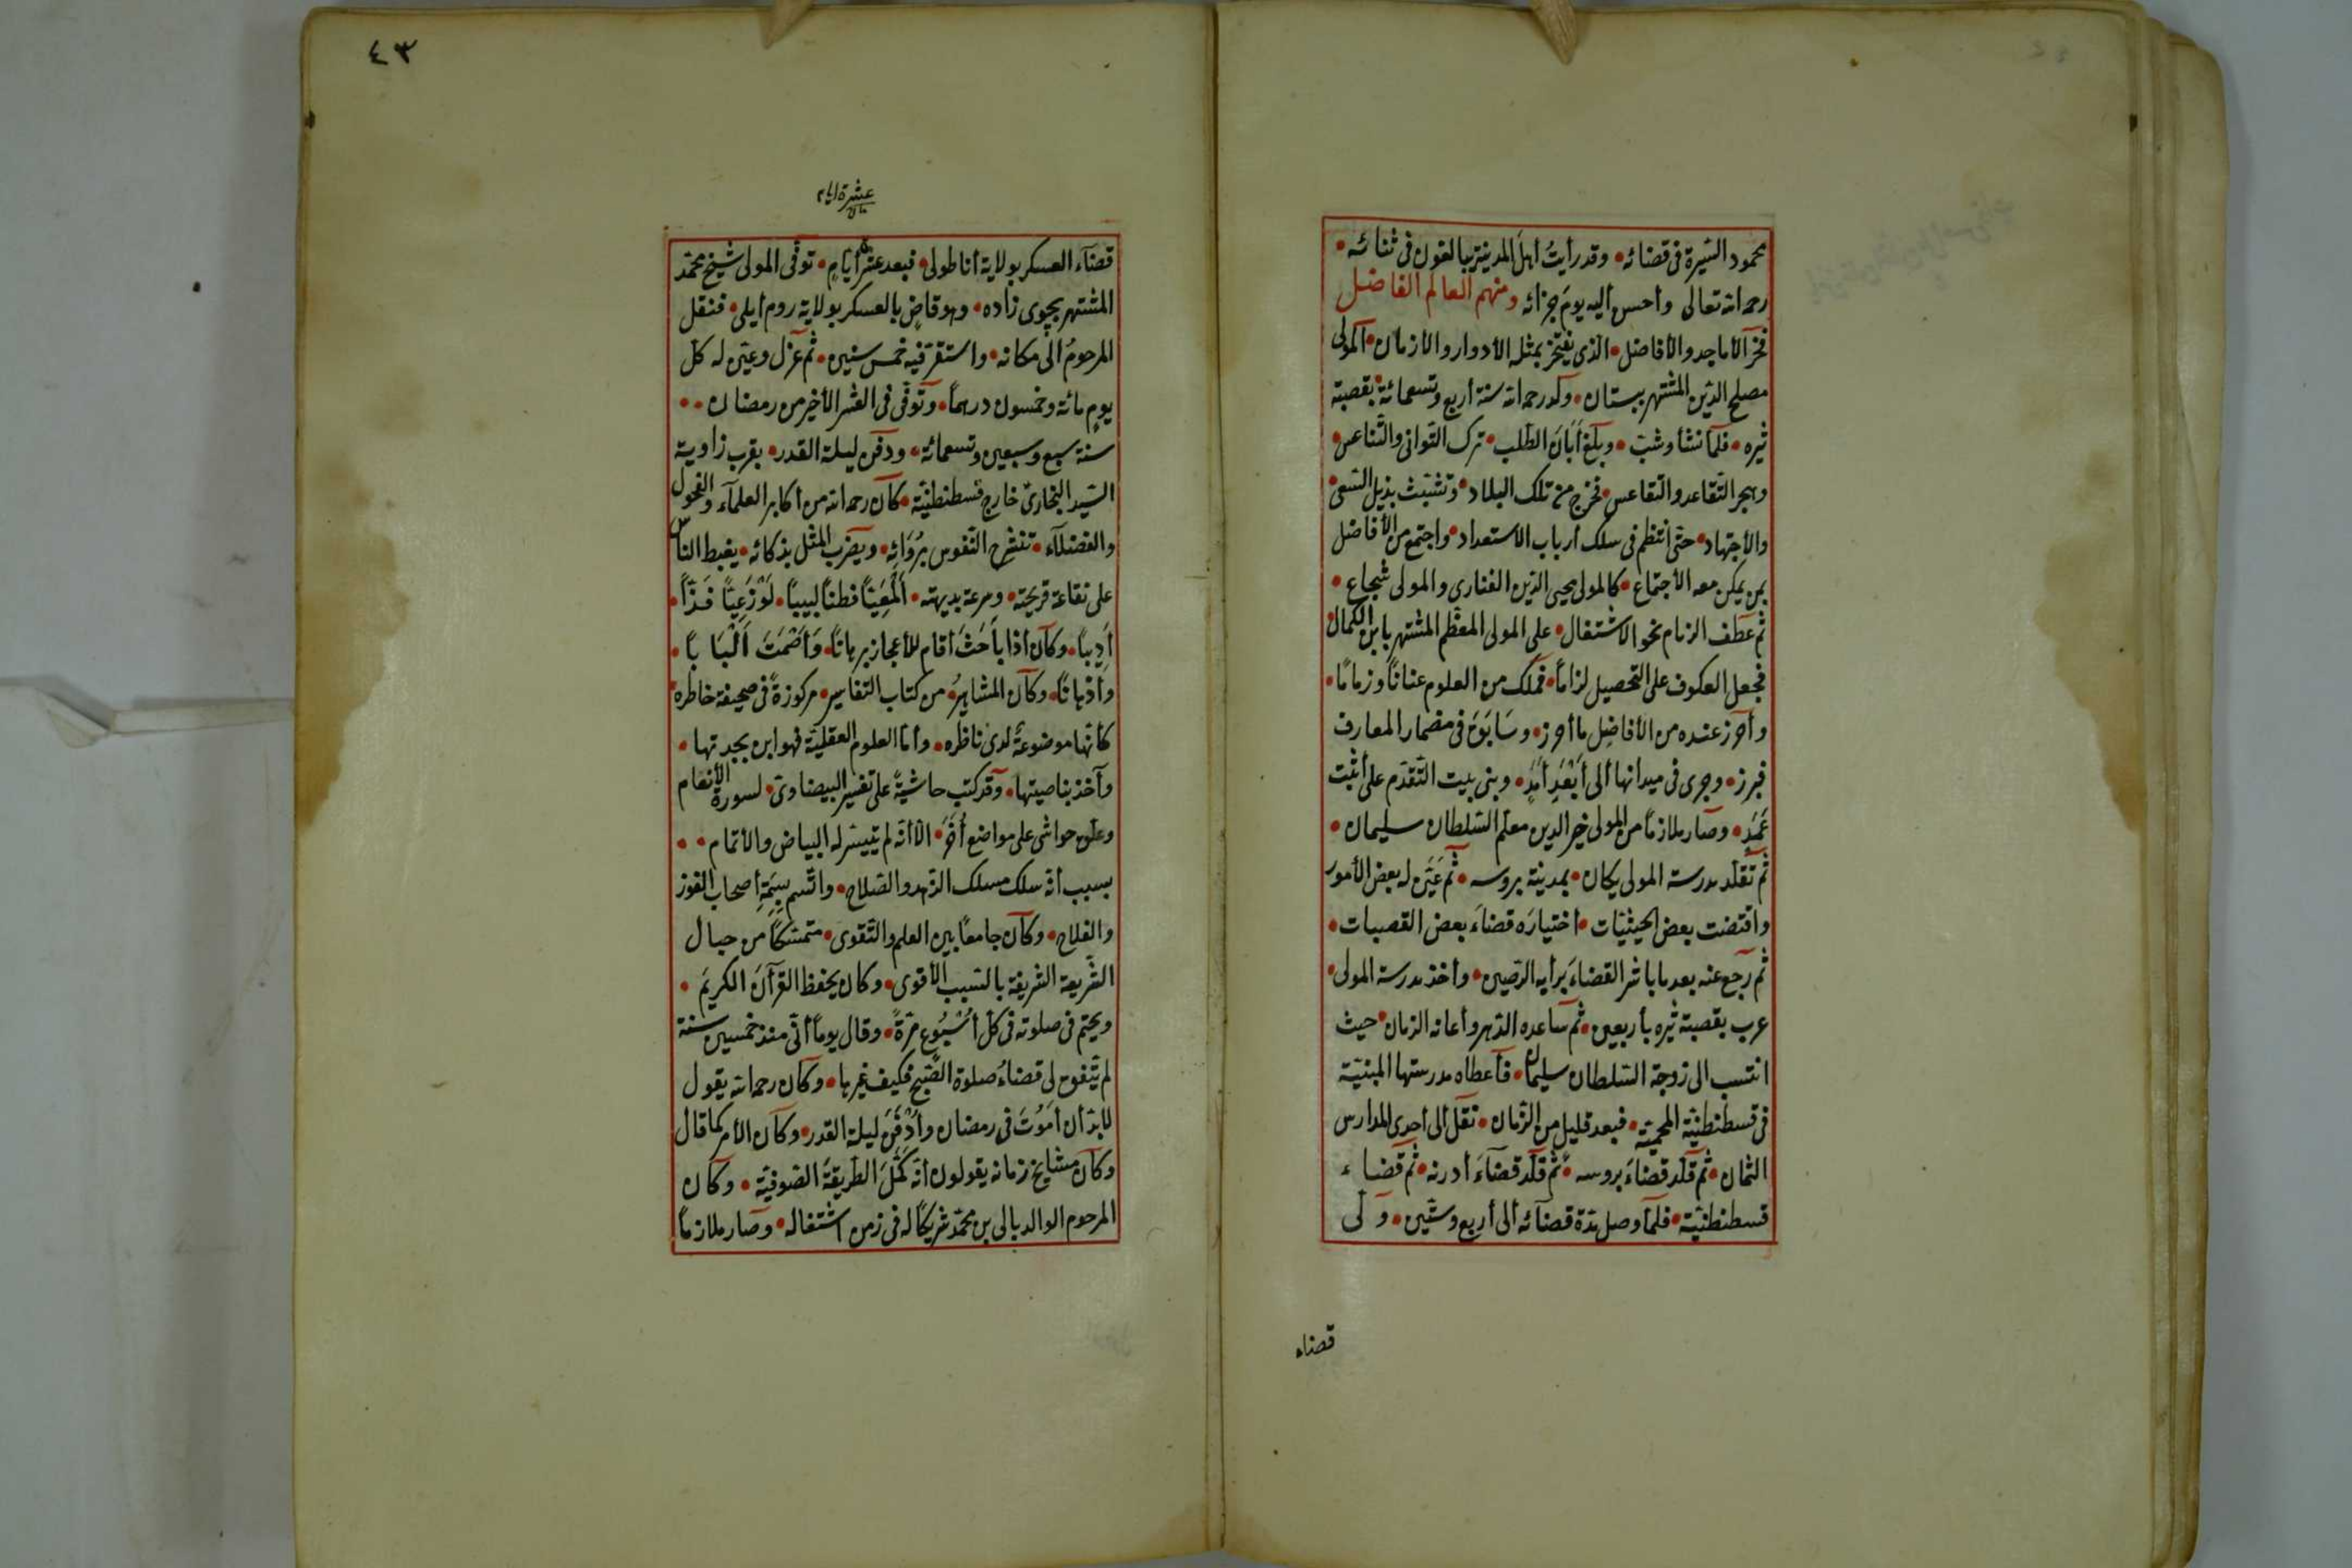 محمود السّيرة فى قضائه • وقد رأيتُ أهلَ المدينة يبالغون فى ثنائه •
رحمه الله تعالى وأحسن أليه يومَ جزائه ومنهم العالم الفاضل
فخر الأماجد والأفاضل • الّذى يفتخر بمثله الأدوار والأزمان • المولى
مصلح الدّين المشتهر ببستان • ولد رحمه الله سنة أربع وتسعمائة • بقصبة
تيره • فلمّا نشأ وشبّ • وبلغ أبّانَ الطّلب • ترك التّوانى والتّناعس •
وهجر التّقاعد والتّقاعس • فخرج من تلك البلاد • وتشبّث بذيل السّعى
والأجتهاد • حتّى انتظم فى سلك أرباب الاستعداد • واجتمع من الأفاضل
بمن يمكن معه الأجتماع • كالمولى محيى الدّين الفنارى والمولى شجاع •
ثم عطف الزمام نحو الاشتغال • على المولى المعظّم المشتهر بابن الكمال •
فجعل العكوف على التّحصيل لزاماً • فملك من العلوم عناناً وزماماً •
وأحرز عنده من الأفاضِل ما أحرز • وسَابَقَ فى مضمار المعارف
فبرز • وجرى فى ميدانها ألى أَبْعَدِ أَمَدٍ • وبنى بيت التّقدّم على أثبت
عَمَدٍ • وصار ملازماً من المولى خير الدين معلّم السّلطان سليمان •
ثم تقلّد مدرسة المولى يكان • بمدينة بروسه • ثم عَيَّن له بعض الأمور
واقتضت بعض الحيثيّات • اختيارَه قضاءَ بعض القصبات •
ثم رجع عنه بعد ما باشر القضاءَ برأيه الرّصين • وأخذ مدرسة المولى •
عرب بقصبة تيره بأربعين • ثم ساعده الدّهر وأعانه الزمان • حيث
انتسب الى زوجة السّلطان سليمان • فأعطاه مدرستها المبنيّة
فى قسطنطنيّة المحميّة • فبعد قليل من الزّمان • نقل ألى أحدى المدارس
الثمان • ثم قلّد قضاءَ بروسه • ثم قلّد قضآءَ أدرنه • ثم قضاء
قسطنطنيّة • فلمّا وصل مدّة قضآئه ألى أربع وستّين • ولى
قضاء
٤٣
عشرة ايام
قضآء العسكر بولاية أناطولى • فبعد عشرة أيّام • توفّى المولى شيخ محمّد
المشتهر بچوى زاده • وهو قاضٍ بالعسكر بولاية روم أيلى • فنقل
المرحومُ الى مكانه • واستقرّ فيه خمس سنين • ثم عزل وعيّن له كلّ
يومٍ مائة وخمسون درهماً • وتوفّى فى العشر الأخير من رمضان • •
سنة سبع وسبعين وتسعمائة • ودفن ليلة القدر • بقرب زاوية
السّيد البخارىّ خارج قسطنطنيّة • كان رحمه الله من أكابر العلمآء والفحول
والفضلآء • تنشرح النّفوس برُوَائِه • ويضرب المثل بذكائه • يغبط الناس
على نقاعة قريحته • وسرعة بديهته • أَلْمَعِيّاً فطناً لبيباً • لَوْزَعِيّاً فَذّاً •
أَدِيباً • وكان أذا بَاحَثَ أقام للأعجاز برهاناً • وَأَصْمَتَ أَلْبَاباً •
وأذهاناً • وكان المشاهيرُ من كتاب التفاسير • مركوزةً فى صحيفة خاطره •
كأنّها موضوعةٌ لدى ناظره • وأمّا العلوم العقليّة فهو ابن بجدتها •
وآخذ بناصيتها • وقد كتب حاشيةً على تفسير البيضاوىّ • لسورة الأنعام
وعلّق حواشى على مواضع أُخَرَ • الّا أنّه لم يتيسّر له البياض والأتمام • •
بسبب أنّه سلك مسلك الزّهد والصّلاح • واتّسم بسِمَةِ أصحاب الفوز
والفلاح • وكان جامعاً بين العلم والتّقوى • متمسّكاً من حبال
الشّريعة الشريفة بالسّبب الأقوى • وكان يحفظ القرآنَ الكريمَ •
ويختم فى صلوته فى كلّ أُسْبُوعٍ مرّةً • وقال يوماً أنّى منذ خمسين سنة
لم يتّفق لى قضاءُ صلوة الصّبح فكيف غيرها • وكان رحمه الله يقول
لابدّ أن أَمُوتَ فى رمضان وأُدْفَنَ ليلة القدر • وكان الأمر كما قال
وكان مشايخ زمانه يقولون أنّه كَمَّلَ الطّريقة الصّوفيّة • وكان
المرحوم الوالد بالى بن محمّد شريكاً له فى زمن اشتغاله • وصار ملازماً